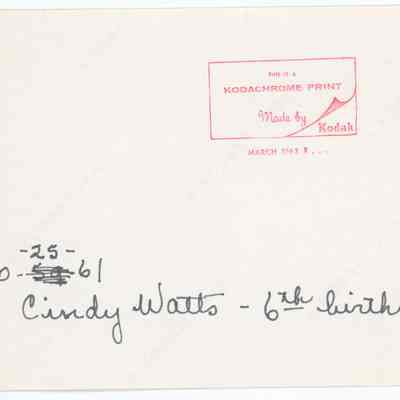 THIS IS A
KODACHROME PRINT
Made by
Kodak
MARCH 1961 X . . .
-25-
61
Cindy Watts - 6th birth